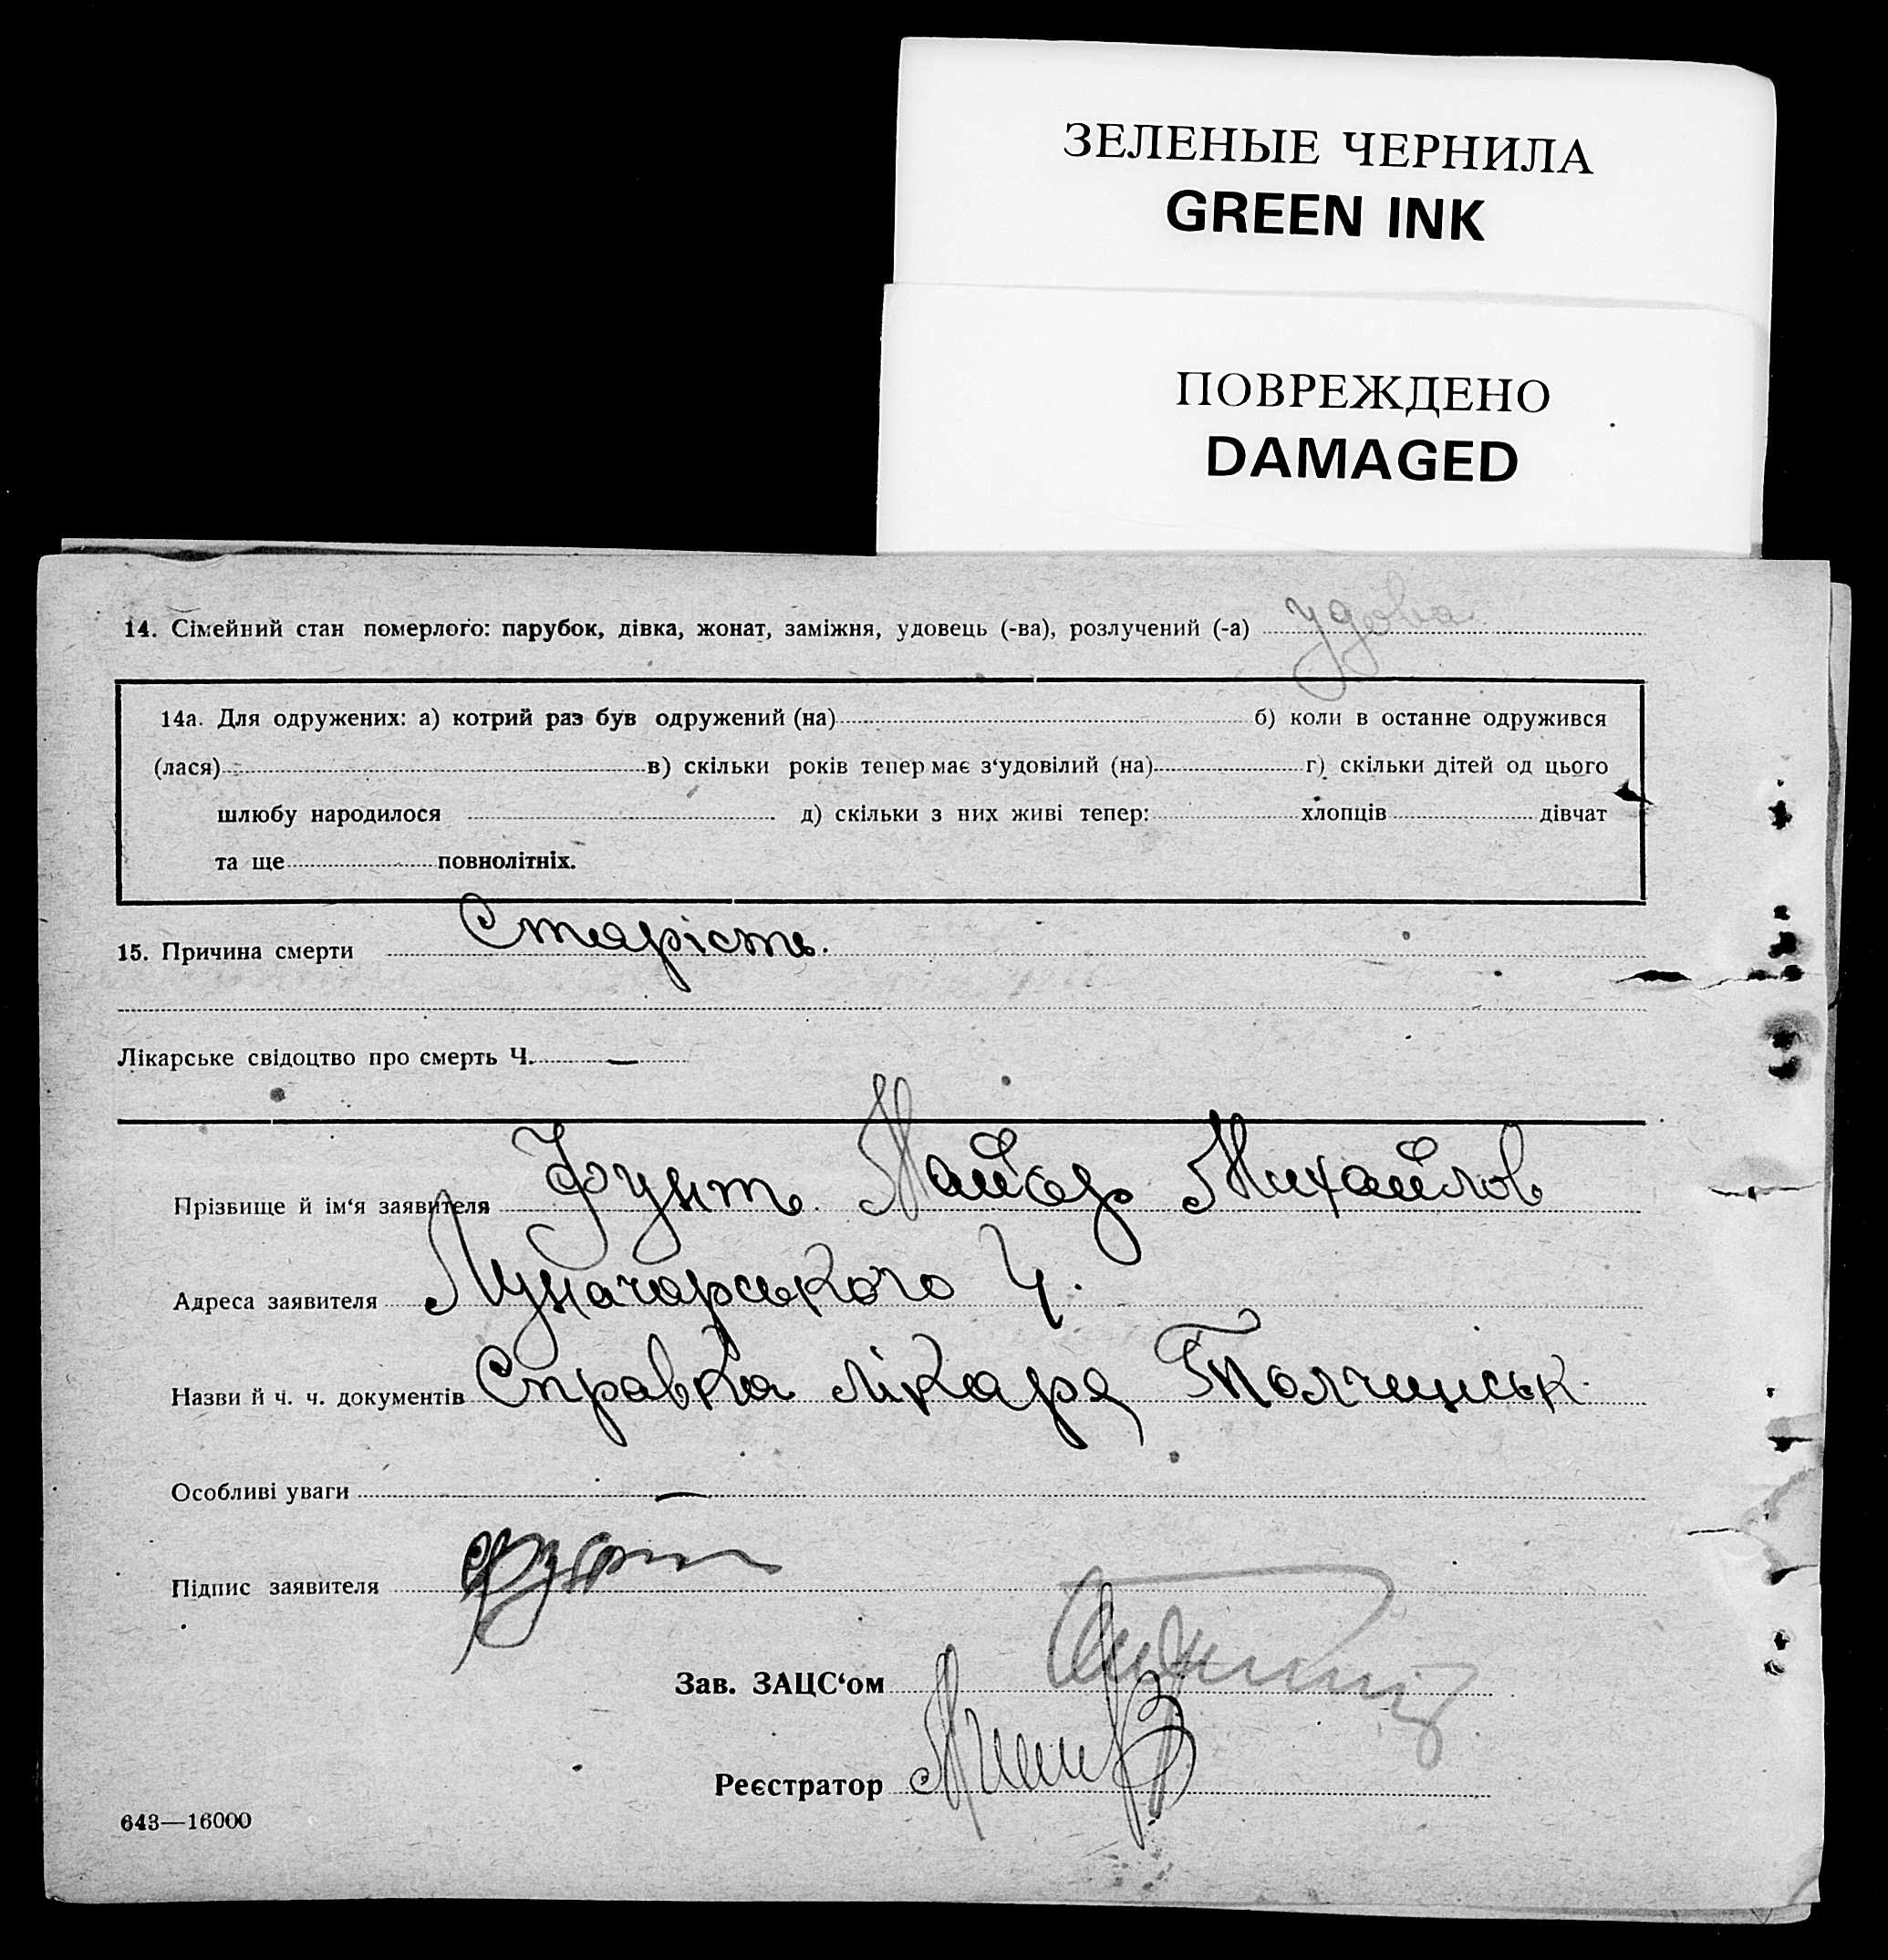 ЗЕЛЕНЫЕ ЧЕРНИЛА
GREEN INK
ПОВРЕЖДЕНО
DAMAGED
14. Сімейний стан померлого: парубок, дівка, жонат, заміжня, удовець (-ва), розлучений (-а) удова
14а. Для одружених: а) котрий раз був одружений (на) б) коли в останне одружився
(лася) в) скільки років тепер має з‘удовілий (на) г) скільки дітей од цього
шлюбу народилося д) скільки з них живі тепер: хлопців дівчат
та ще повнолітніх.
15. Причина смерти Старість.
Лікарське свідоцтво про смерть Ч. —
Прізвище й ім‘я заявителя Фунт Майор Михайлов
Адреса заявителя Луначарського 4.
Назви й ч. ч. документів Справка лікаря Толчинськ.
Особливі уваги —
Підпис заявителя
Зав. ЗАЦС‘ом
Реєстратор
643—16000